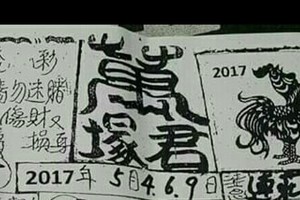 彩
請勿迷賭
傷財又
損身
萬
君塚
2017
2017年5月4.6.9日